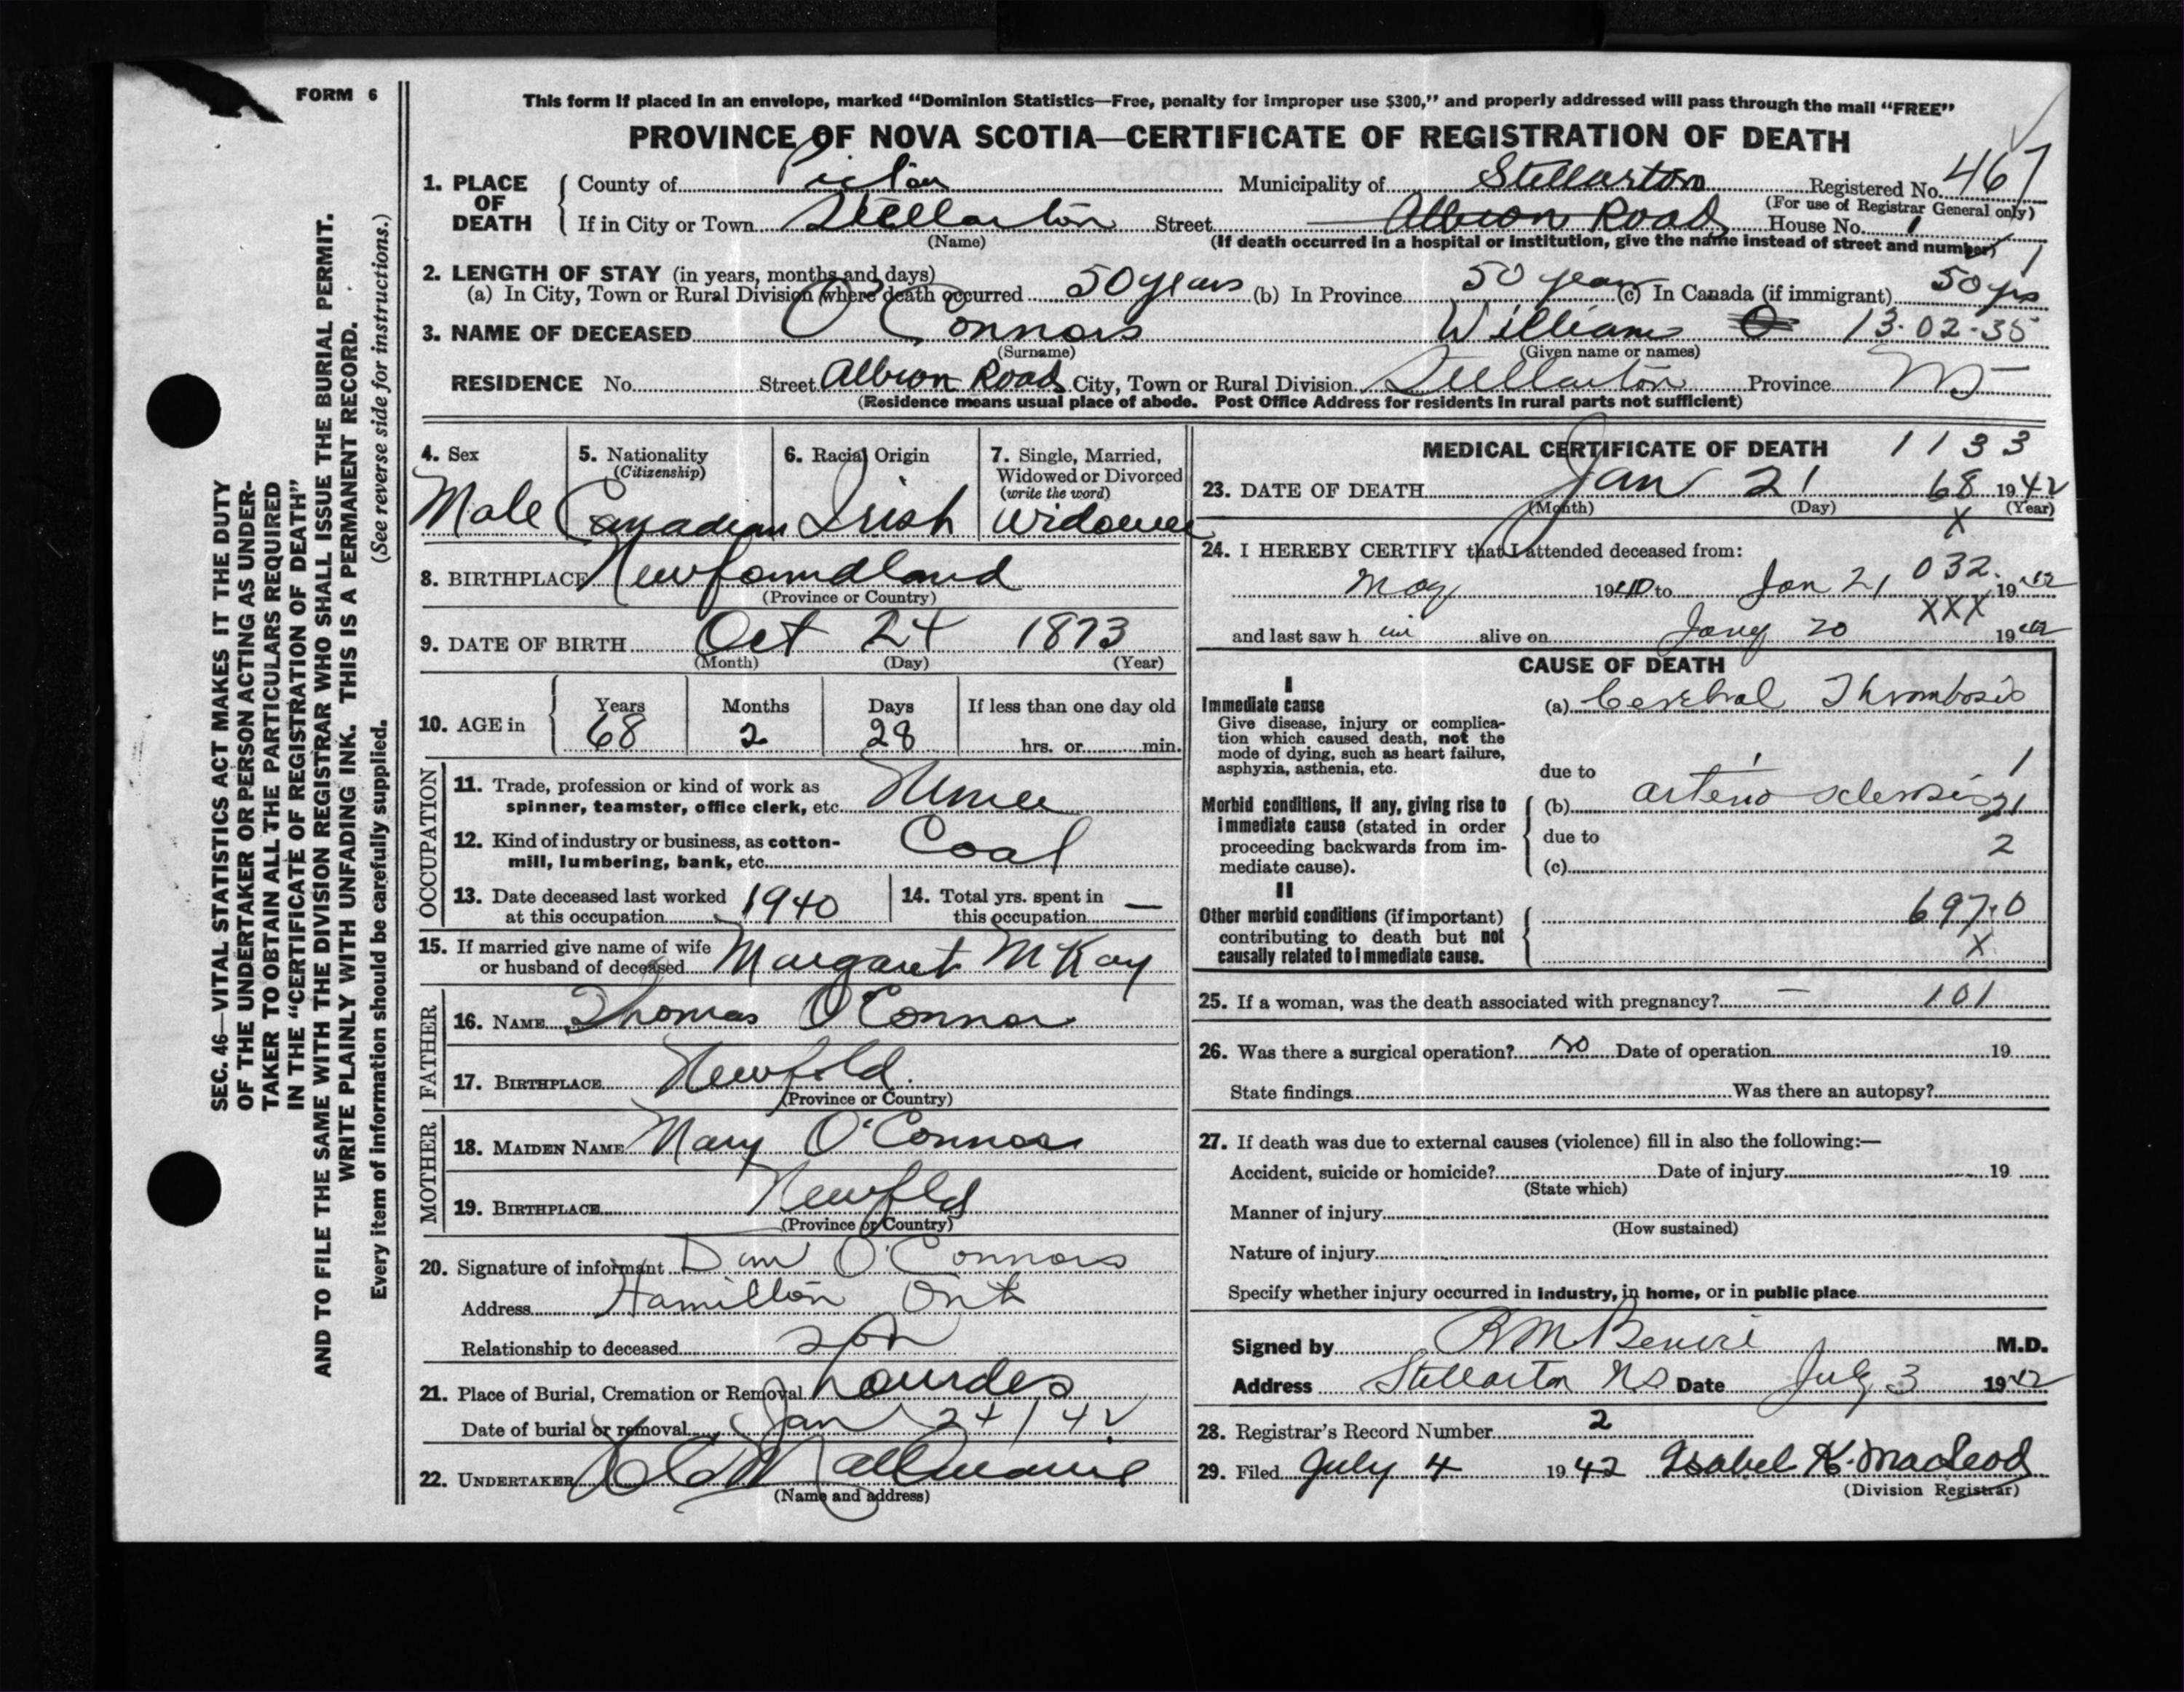 FORM 6
SEC. 46—VITAL STATISTICS ACT MAKES IT THE DUTY
OF THE UNDERTAKER OR PERSON ACTING AS UNDER-
TAKER TO OBTAIN ALL THE PARTICULARS REQUIRED
IN THE "CERTIFICATE OF REGISTRATION OF DEATH"
AND TO FILE THE SAME WITH THE DIVISION REGISTRAR WHO SHALL ISSUE THE BURIAL PERMIT.
WRITE PLAINLY WITH UNFADING INK. THIS IS A PERMANENT RECORD.
Every item of information should be carefully supplied. (See reverse side for instructions.)
This form if placed in an envelope, marked "Dominion Statistics—Free, penalty for improper use $300," and properly addressed will pass through the mail "FREE"
PROVINCE OF NOVA SCOTIA—CERTIFICATE OF REGISTRATION OF DEATH
1. PLACE OF DEATH
County of Pictou Municipality of Stellarton Registered No. 467
(For use of Registrar General only)
If in City or Town Stellarton Street Albion Road House No. 1
(Name) (If death occurred in a hospital or institution, give the name instead of street and number)
2. LENGTH OF STAY (in years, months and days)
(a) In City, Town or Rural Division where death occurred 50 years (b) In Province 50 years (c) In Canada (if immigrant) 50 yrs
3. NAME OF DECEASED O'Connors William 13-02-35
(Surname) (Given name or names)
RESIDENCE No. Street Albion Road City, Town or Rural Division Stellarton Province
(Residence means usual place of abode. Post Office Address for residents in rural parts not sufficient)
4. Sex
Male
5. Nationality
(Citizenship)
Canadian
6. Racial Origin
Irish
7. Single, Married,
Widowed or Divorced
(write the word)
Widower
8. BIRTHPLACE Newfoundland
(Province or Country)
9. DATE OF BIRTH Oct 24 1873
(Month) (Day) (Year)
10. AGE in Years Months Days If less than one day old
68 2 28 hrs. or min.
OCCUPATION
11. Trade, profession or kind of work as
spinner, teamster, office clerk, etc.
12. Kind of industry or business, as cotton-
mill, lumbering, bank, etc. Coal
13. Date deceased last worked
at this occupation 1940
14. Total yrs. spent in
this occupation —
15. If married give name of wife
or husband of deceased Margaret McKay
FATHER
16. NAME Thomas O'Connor
17. BIRTHPLACE Newfld.
(Province or Country)
MOTHER
18. MAIDEN NAME Mary O'Connor
19. BIRTHPLACE Newfld
(Province or Country)
20. Signature of informant Dan O'Connors
Address Hamilton Ont
Relationship to deceased son
21. Place of Burial, Cremation or Removal Lourdes
Date of burial or removal Jan 24/42
22. UNDERTAKER
(Name and address)
MEDICAL CERTIFICATE OF DEATH 1133
23. DATE OF DEATH Jan 21 68 1942
(Month) (Day) (Year)
X
24. I HEREBY CERTIFY that I attended deceased from:
032.
May 1940 to Jan 21 1942
XXX
and last saw him alive on Jany 20 1942
CAUSE OF DEATH
I
Immediate cause
Give disease, injury or complica-
tion which caused death, not the
mode of dying, such as heart failure,
asphyxia, asthenia, etc.
(a) Cerebral Thrombosis
due to 1
Morbid conditions, if any, giving rise to
immediate cause (stated in order
proceeding backwards from im-
mediate cause).
(b) arterio sclerosis 21
due to 2
(c)
II
Other morbid conditions (if important)
contributing to death but not
causally related to immediate cause.
697.0
X
25. If a woman, was the death associated with pregnancy? — 101
26. Was there a surgical operation? No Date of operation 19
State findings Was there an autopsy?
27. If death was due to external causes (violence) fill in also the following:—
Accident, suicide or homicide? Date of injury 19
(State which)
Manner of injury
(How sustained)
Nature of injury
Specify whether injury occurred in industry, in home, or in public place
Signed by M.D.
Address Stellarton NS Date July 3 1942
28. Registrar's Record Number 2
29. Filed July 4 1942 Isabel K. MacLeod
(Division Registrar)